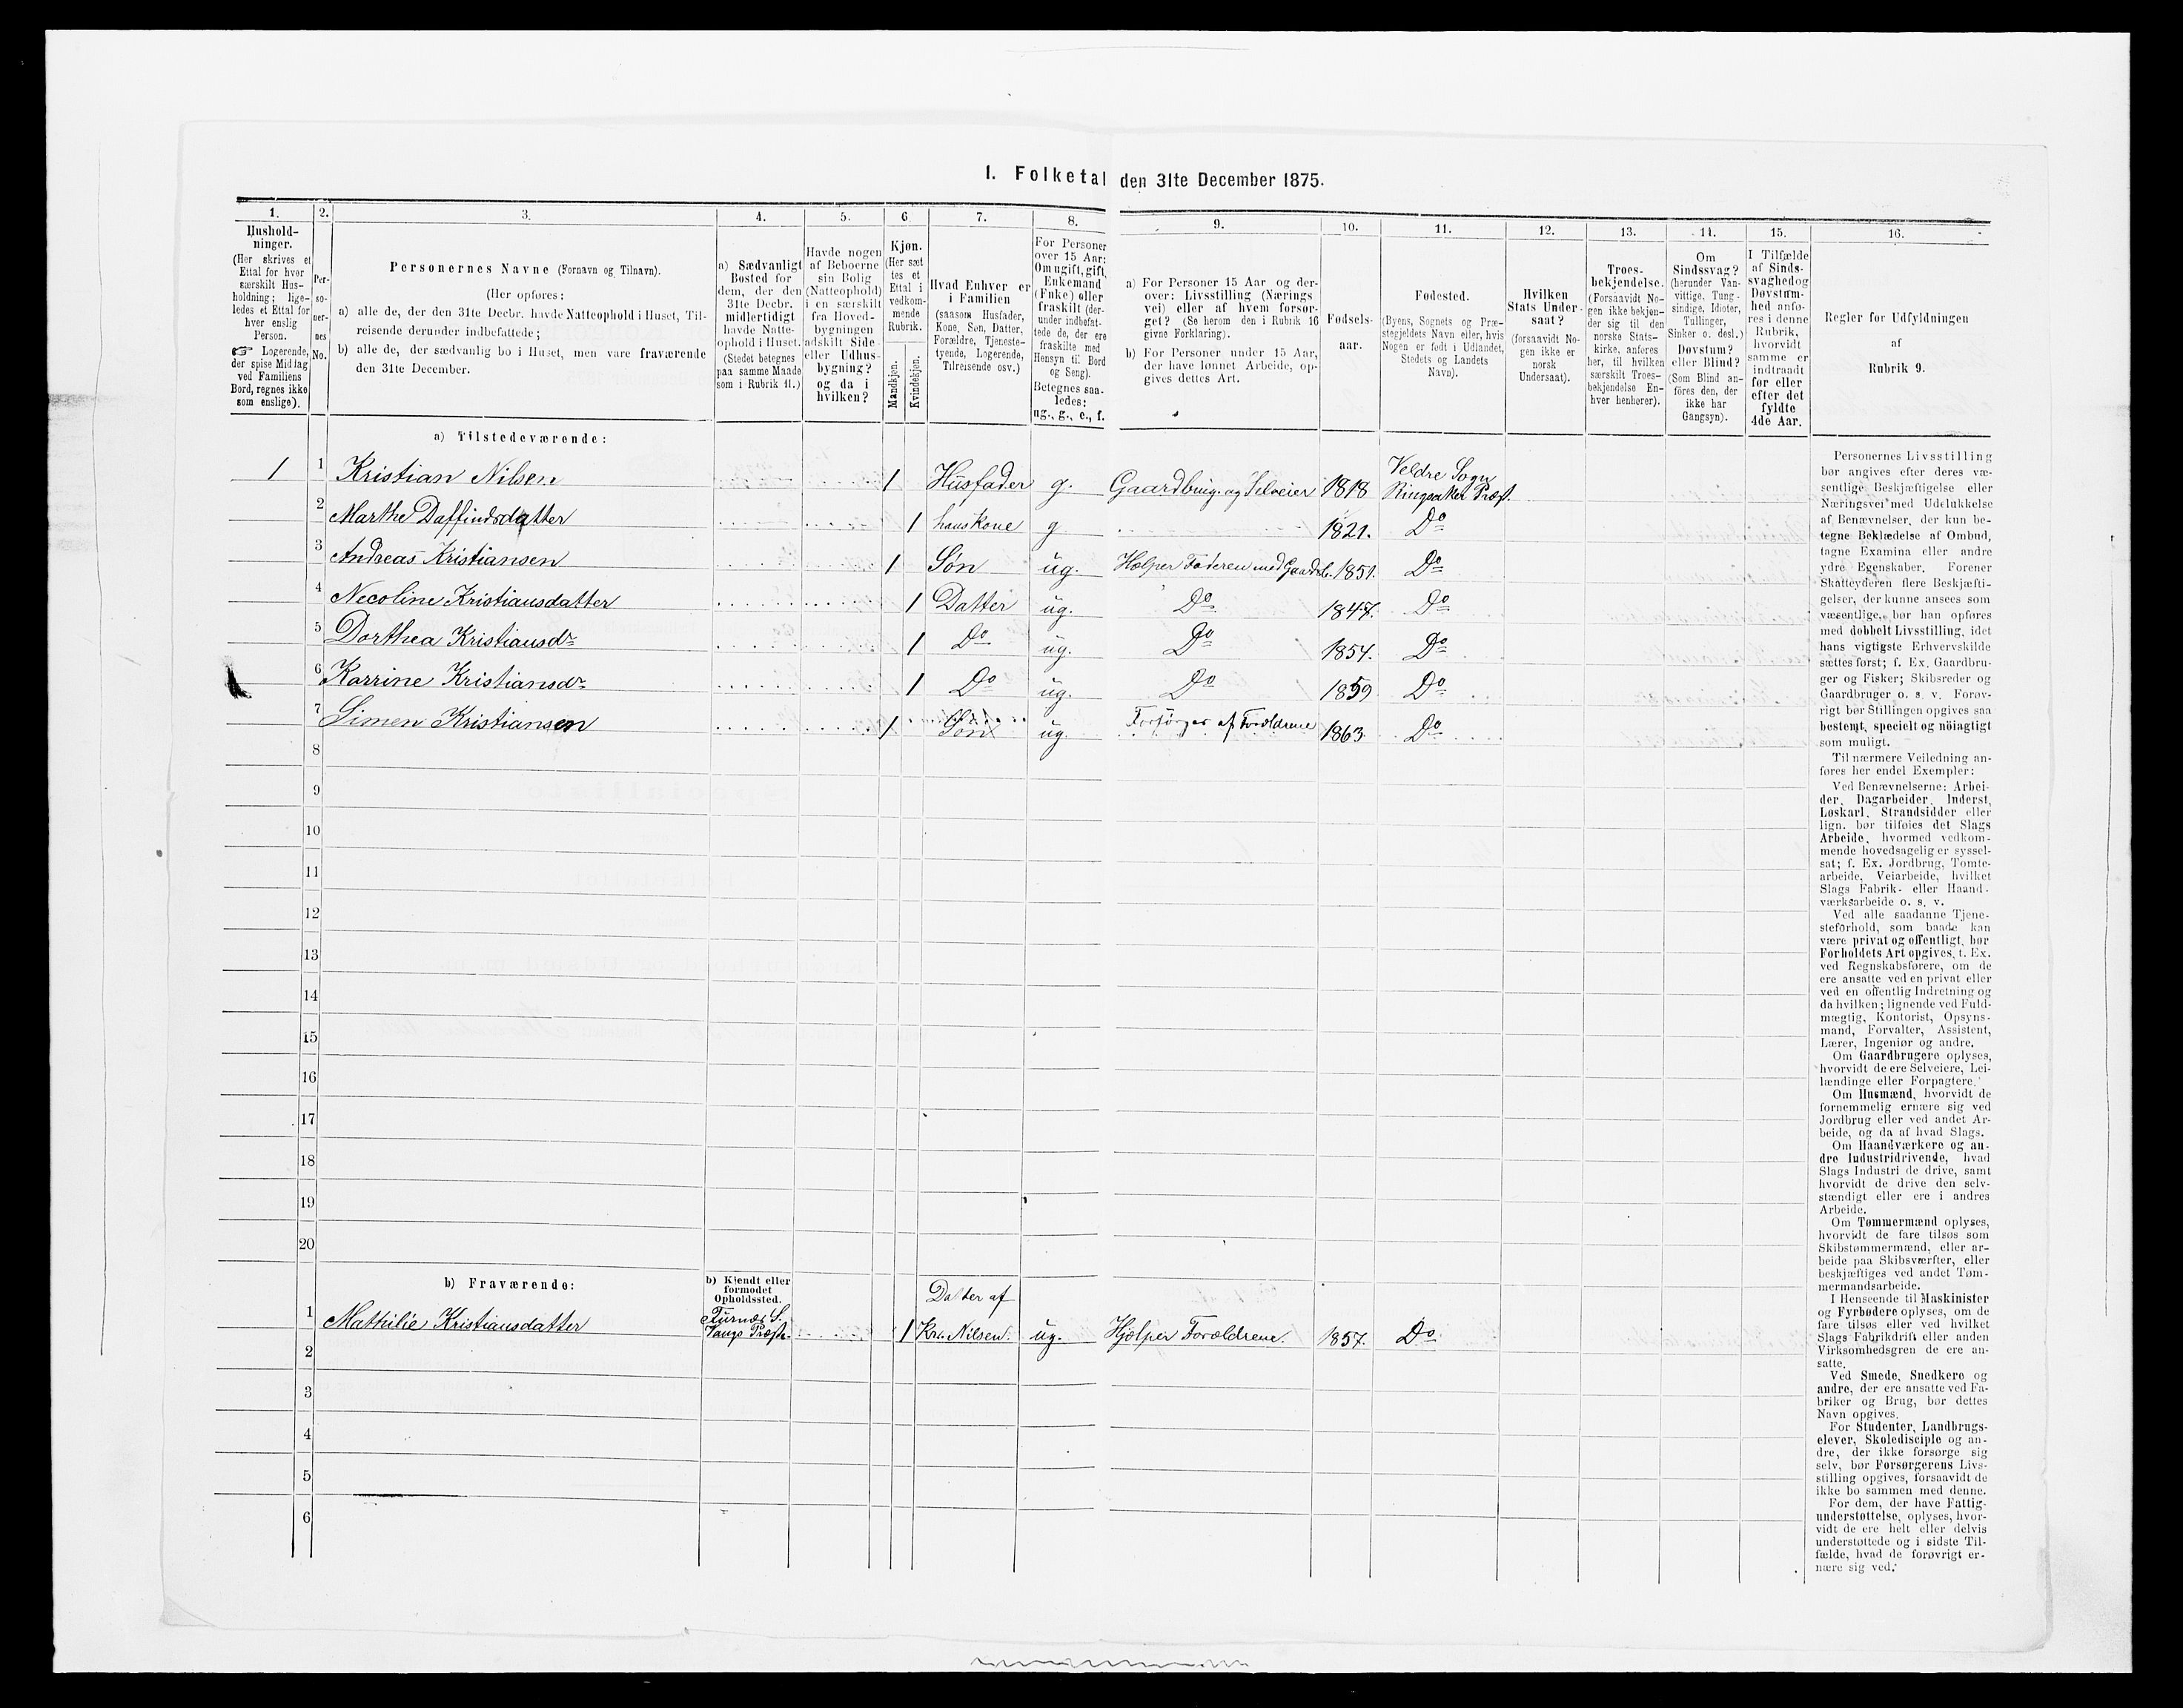 1. Folketal den 31te December 1875.
1. 2. 3. 4. 5. 6. 7. 8. 9. 10. 11. 12. 13. 14. 15. 16.
Hushold-
ninger.
(Her skrives et
Ettal for hver
særskilt Hus-
holdning; lige-
ledes et Ettal for
hver enslig
Person.
☞ Logerende,
der spise Middag
ved Familiens
Bord, regnes ikke
som enslige).
Per-
so-
ner-
nes
No.
Personernes Navne (Fornavn og Tilnavn).
(Her opføres:
a) alle de, der den 31te Decbr. havde Natteophold i Huset, Til-
reisende derunder indbefattede;
b) alle de, der sædvanlig bo i Huset, men vare fraværende
den 31te December.
a) Sædvanligt
Bosted for
dem, der den
31te Decbr.
midlertidigt
havde Natte-
ophold i Huset.
(Stedet betegnes
paa samme Maade
som i Rubrik 11.)
Havde nogen
af Beboerne
sin Bolig
(Natteophold)
i en særskilt
fra Hoved-
bygningen
adskilt Side-
eller Udhus-
bygning?
og da i
hvilken?
Kjøn.
(Her sæt
tes et
Ettal i
vedkom-
mende
Rubrik.
Mandkjøn.
Kvindekjøn.
Hvad Enhver er
i Familien
(saasom Husfader,
Kone, Søn, Datter,
Forældre, Tjeneste-
tyende, Logerende,
Tilreisende osv.)
For Personer
over 15 Aar:
Om ugift, gift,
Enkemand
(Enke) eller
fraskilt (der-
under indbefat-
tede de, der ere
fraskilte med
Hensyn til Bord
og Seng).
Betegnes saa-
ledes:
ug., g., e., f.
a) For Personer 15 Aar og der-
over: Livsstilling (Nærings
vei) eller af hvem forsør-
get? (Se herom den i Rubrik 16
givne Forklaring).
b) For Personer under 15 Aar,
der have lønnet Arbeide, op-
gives dettes Art.
Fødsels-
aar.
Fødested.
(Byens, Sognets og Præ-
stegjeldets Navn eller, hvis
Nogen er født i Udlandet,
Stedets og Landets
Navn).
Hvilken
Stats Under-
saat?
(forsaavidt No-
gen ikke er
norsk
Undersaat).
Troes-
bekjendelse.
(Forsaavidt No-
gen ikke bekjen-
der sig til den
norske Stats-
kirke, anføres
her, til hvilken
særskilt Troes-
bekjendelse En-
hver henhører).
Om
Sindssvag?
(herunder Van-
vittige, Tung-
sindige, Idioter,
Tullinger,
Sinker o. desl.)
Døvstum?
eller Blind?
(Som Blind an-
føres den, der
ikke har
Gangsyn).
I Tilfælde
af Sinds-
svaghed og
Døvstum-
hed anfø-
res i denne
Rubrik,
hvorvidt
samme er
indtraadt
før eller
efter det
fyldte
4de Aar.
Regler for Udfyldningen
af
Rubrik 9.
a) Tilstedeværende:
1 1 Kristian Nilsen 1 Husfader g. Gaardbrug. og Selveier 1818 Veldre Sogn Ringsaker Præst.
2 Marthe Daffindsdatter 1 hans Kone g 1821. Do
3 Andreas Kristiansen 1 Søn ug. Hælper Faderen med Gaardsb. 1851. Do
4 Necoline Kristiansdatter 1 Datter ug. Do 1847. Do
5 Dorthea Kristiansdr 1 Do ug. Do 1854. Do
6 Karrine Kristiansdr 1 Do ug. Do 1859 Do
7 Simen Kristiansen 1 Søn ug. Forsörges af Forældrene 1863 Do
8
9
10
11
12
13
14
15
16
17
18
19
20
b) Fraværende:
b) Kjendt eller
formodet
Opholdssted.
1 Mathilie Kristiansdatter Furnæs S. Vangs Præst. 1 Datter af Kr. Nilsen. ug. Hjælper Forældrene. 1857. Do
2
3
4
5
6
Personernes Livsstilling
bør angives efter deres væ-
sentlige Beskjæftigelse eller
Næringsvei med Udelukkelse
af Benævnelser, der kun be-
tegne Beklædelse af Ombud,
tagne Examina eller andre
ydre Egenskaber. Forener
Skatteyderen flere Beskjæfti-
gelser, der kunne ansees som
væsentlige, bør han opføres
med dobbelt Livsstilling, idet
hans vigtigste Erhvervskilde
sættes først; f. Ex. Gaardbru-
ger og Fisker; Skibsreder og
Gaardbruger o. s. v. Forøv-
rigt bør Stillingen opgives saa
bestemt, specielt og nöiagtigt
som muligt.
Til nærmere Veiledning an-
føres her endel Exempler:
Ved Benævnelserne: Arbei-
der, Dagarbeider, Inderst,
Løskarl, Strandsidder eller
lign. bør tilføies det Slags
Arbeide, hvormed vedkom-
mende hovedsagelig er syssel-
sat; f. Ex. Jordbrug, Tomte-
arbeide, Veiarbeide, hvilket
Slags Fabrik- eller Haand-
værksarbeide o. s. v.
Ved alle saadanne Tjene-
steforhold, som baade kan
være privat og offentligt, bør
Forholdets Art opgives, f. Ex.
ved Regnskabsførere, om de
ere ansatte ved en privat eller
ved en offentlig Indretning og
da hvilken; lignende ved Fuld-
mægtig, Kontorist, Opsyns-
mand, Forvalter, Assistent,
Lærer, Ingeniør og andre.
Om Gaardbrugere oplyses,
hvorvidt de ere Selveiere, Lei-
lændinge eller Forpagtere.
Om Husmænd, hvorvidt de
fornemmelig ernære sig ved
Jordbrug eller ved andet Ar-
beide, og da af hvad Slags.
Om Haandværkere og an-
dre Industridrivende, hvad
Slags Industri de drive, samt
hvorvidt de drive den selv-
stændigt eller ere i andres
Arbeide.
Om Tømmermænd oplyses,
hvorvidt de fare tilsøs som
Skibstømmermænd, eller ar-
beide paa Skibsværfter, eller
beskjæftiges ved andet Tøm-
mermandsarbeide.
I Henseende til Maskinister
og Fyrbødere oplyses, om de
fare tilsøs eller ved hvilket
Slags Fabrikdrift eller anden
Virksomhedsgren de ere an-
satte.
Ved Smede, Snedkere og
andre, der ere ansatte ved Fa-
briker og Brug, bør dettes
Navn opgives.
For Studenter, Landbrugs-
elever, Skoledisciple og an-
dre, der ikke forsørge sig
selv, bør Forsørgerens Livs-
stilling opgives, forsaavidt de
ikke bo sammen med denne.
For dem, der have Fattig-
understøttelse, oplyses, hvor-
vidt de ere helt eller delvis
understøttede og i sidste Til-
fælde, hvad de forøvrigt er-
nære sig ved.